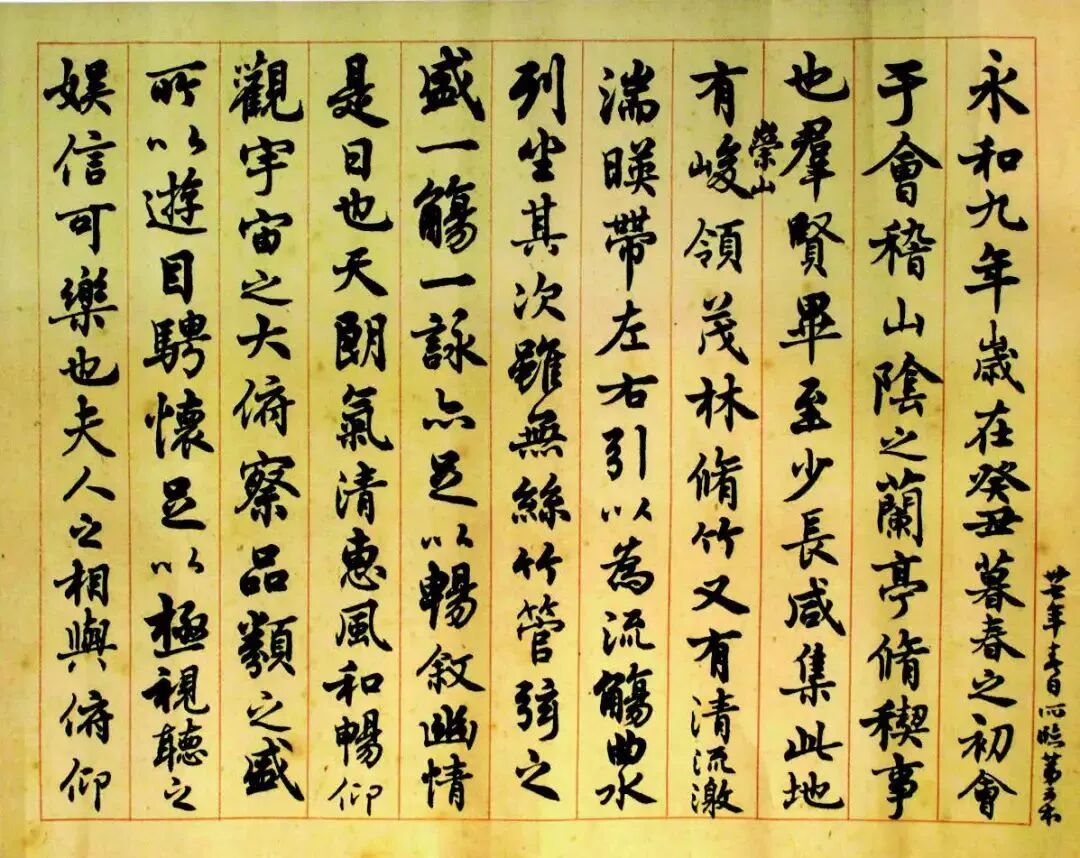 年 日所臨第三本
永和九年歲在癸丑暮春之初會
于會稽山陰之蘭亭脩稧事
也羣賢畢至少長咸集此地
崇山
有峻領茂林脩竹又有清流激
湍暎帶左右引以為流觴曲水
列坐其次雖無絲竹管弦之
盛一觴一詠亦足以暢敘幽情
是日也天朗氣清惠風和暢仰
觀宇宙之大俯察品類之盛
所以遊目騁懷足以極視聽之
娛信可樂也夫人之相與俯仰